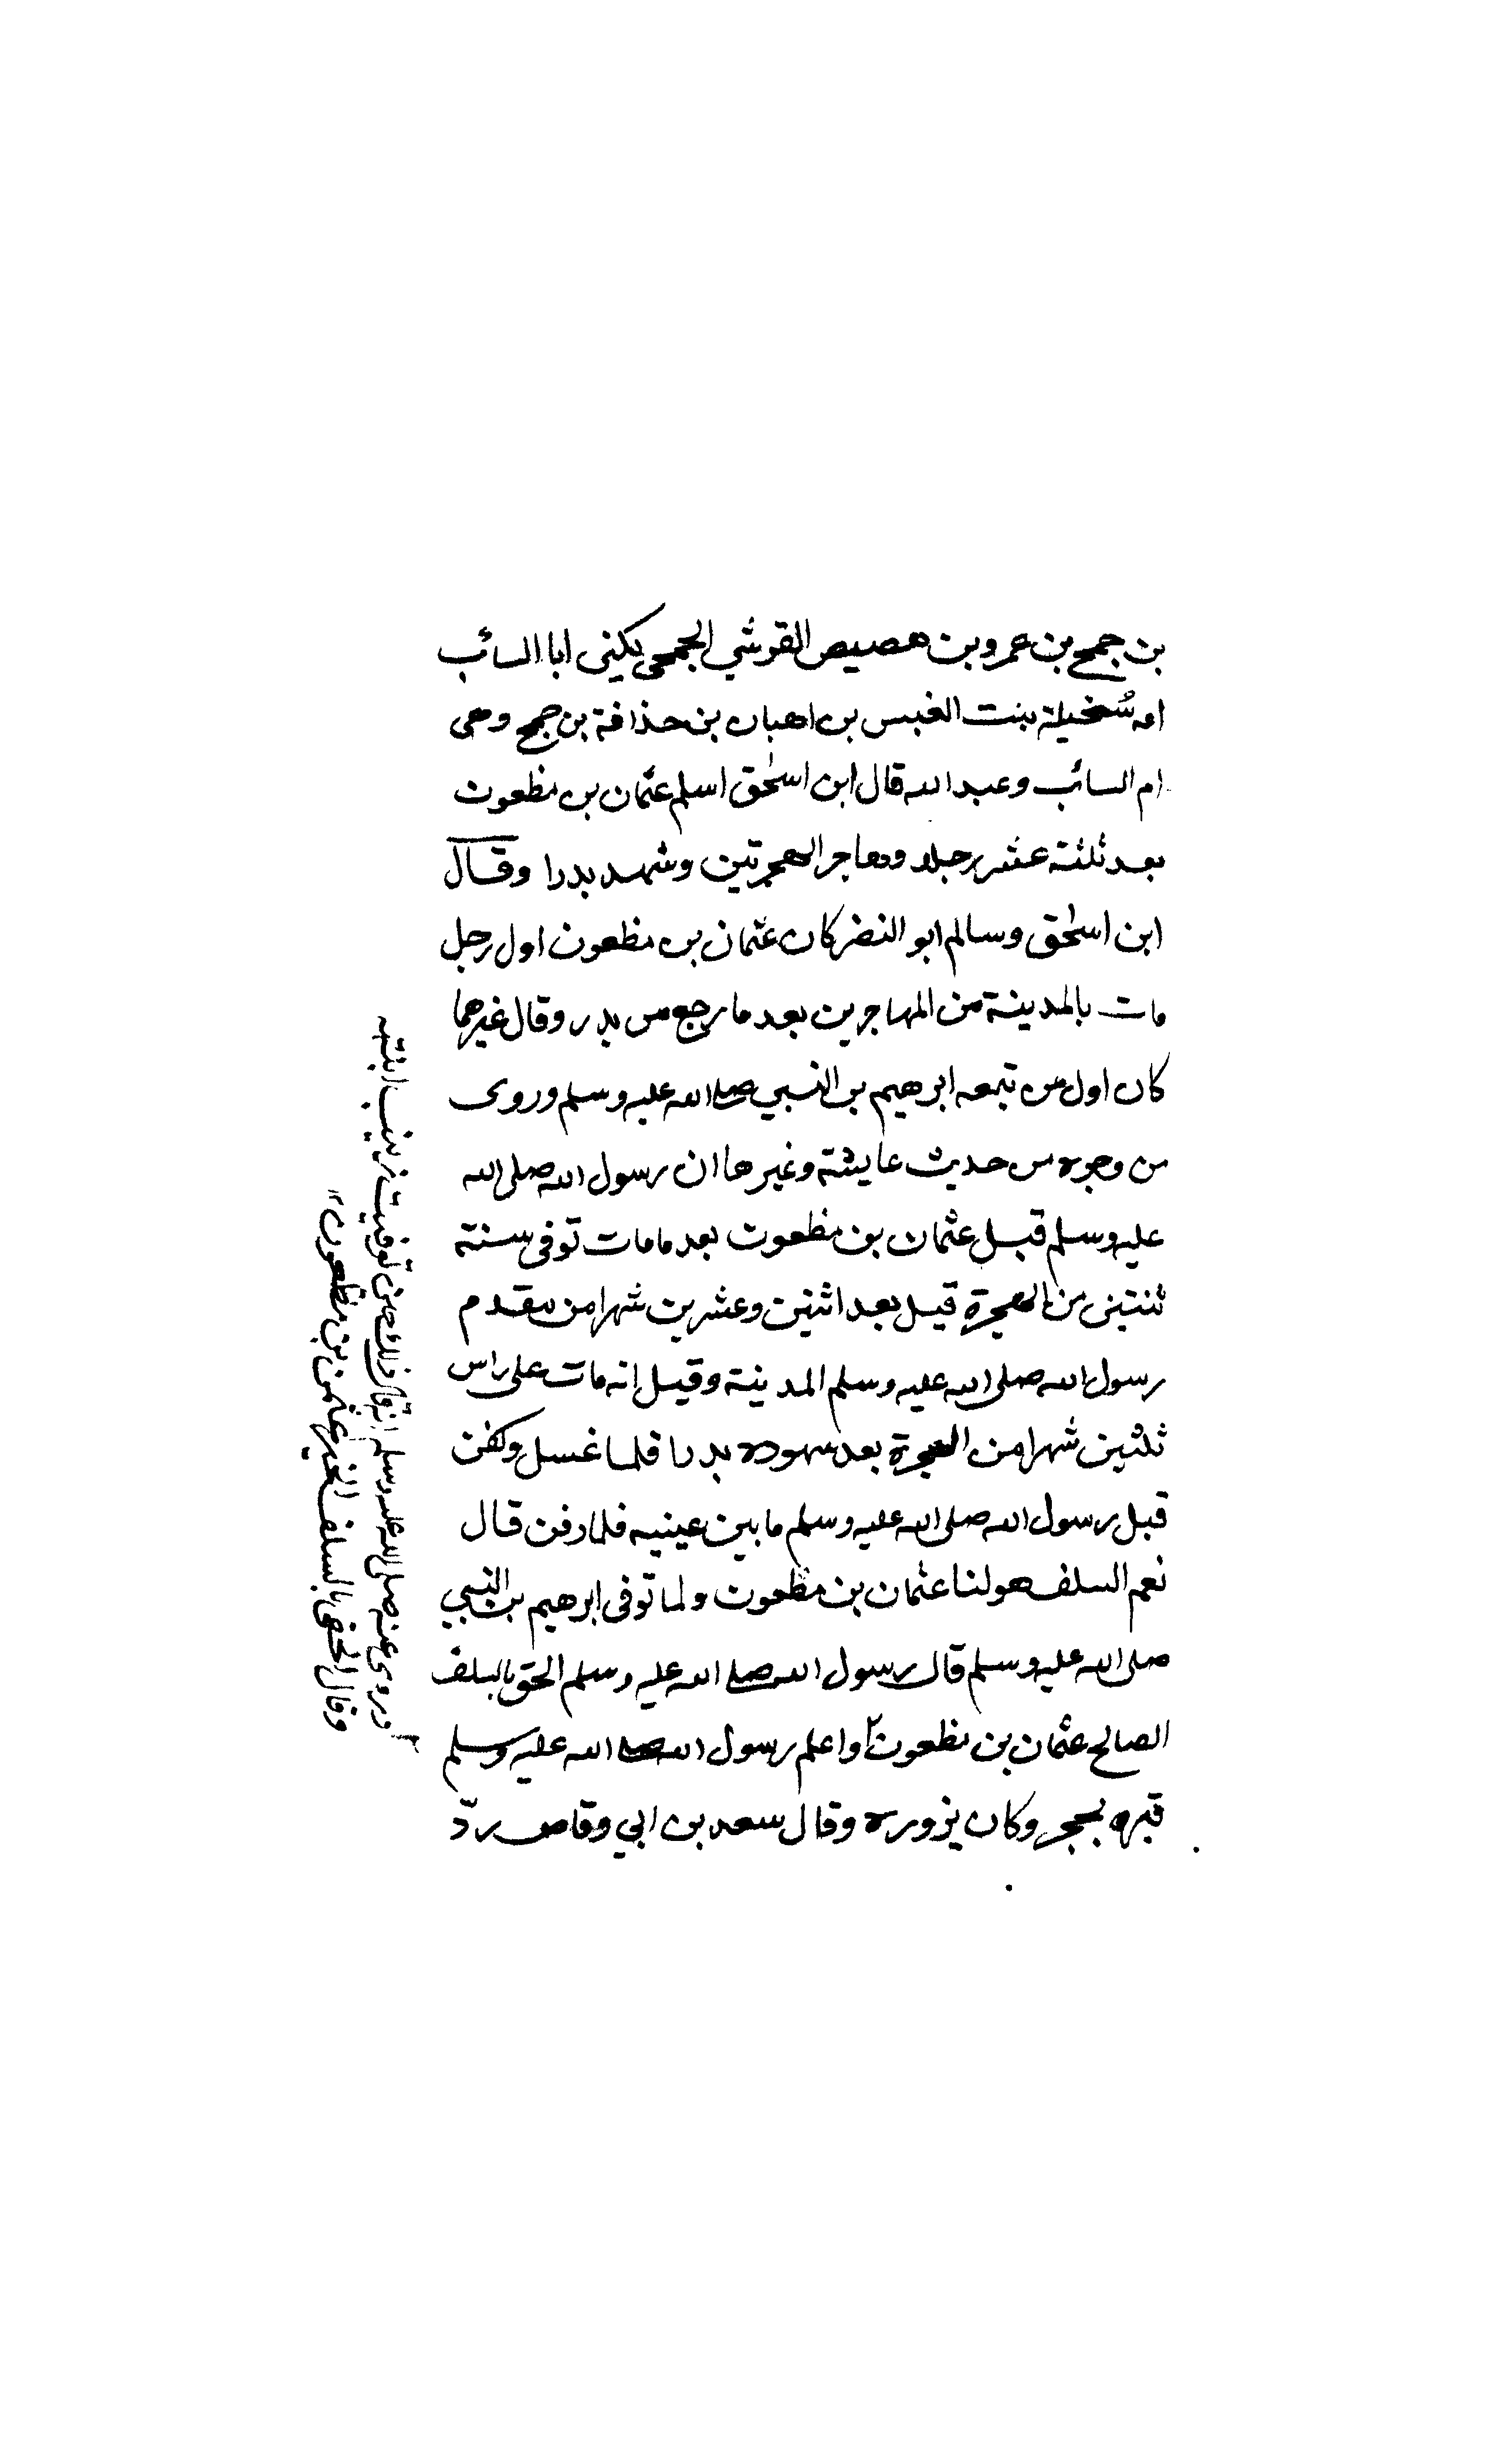 بن جمح بن عمرو بن هصيص القرشي الجمحى يكنى ابا السائب
امه سُخيلة بنت العنبس بن اهبان بن حذافة بن جمح وهى
ام السائب وعبد الله قال ابن اسحٰق اسلم عثمان بن مظعون
بعد ثلثة عشر رجلا وهاجر الهجرتين وشهد بدرا وقال
ابن اسحٰق وسالم ابو النضر كان عثمان بن مظعون اول رجل
مات بالمدينة من المهاجرين بعد ما رجع من بدر وقال غيرهما
كان اول من تبعه ابرهيم بن النبي صلى الله عليه وسلم وروى
من وجوه من حديث عايشة وغيرها ان رسول الله صلى الله
عليه وسلم قبل عثمان بن مظعون بعد ما مات توفى سنة
ثنتين من الهجرة قيل بعد اثنين وعشرين شهرا من مقدم
رسول الله صلى الله عليه وسلم المدينة وقيل انه مات على راس
ثلثين شهرا من الهجرة بعد شهوده بدرا فلما غسل وكفن
قبل رسول الله صلى الله عليه وسلم ما بين عينيه فلما دفن قال
نعم السلف هو لنا عثمان بن مظعون ولما توفى ابرهيم بن النبي
صلى الله عليه وسلم قال رسول الله صلى الله عليه وسلم الحق بالسلف
الصالح عثمان بن مظعون واعلم رسول الله صلى الله عليه وسلم
قبره بحجر وكان يزوره وقال سعد بن ابي وقاص ردّ
وروى عنه صلى الله عليه وسلم انه قال ذلك حين توفيت زينب ابنته
وقال الحقى بالسلف الخير عثمن بن مظعون